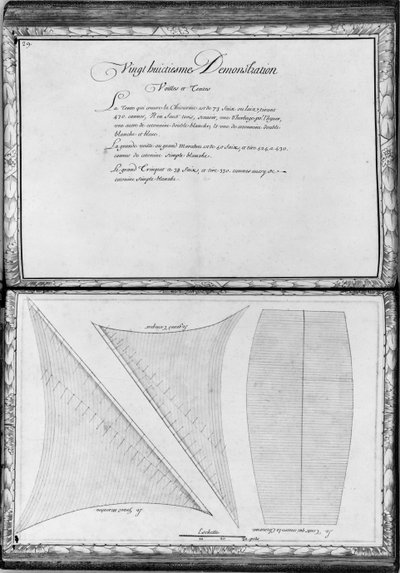 29.
Vingt huictiesme Demonstration
Voilles et Tentes
La Tente qui couvre la Chiourme est de 73
470. cannes, Il en faut trois, scavoir, une d'herbage
une autre de cotonnine double blanche, & une de cotonnine double
blanche et bleue.
La grande voille ou grand Marabou est de 40 et tire 424 a 430.
cannes de cotonine simple blanche.
Le grand Trinquet a 38 et tire 330. cannes
cotonine simple blanche.
Le grand Trinquet
Le grand Marabou
La Tente qui couvre la Chiourme
Leschelle